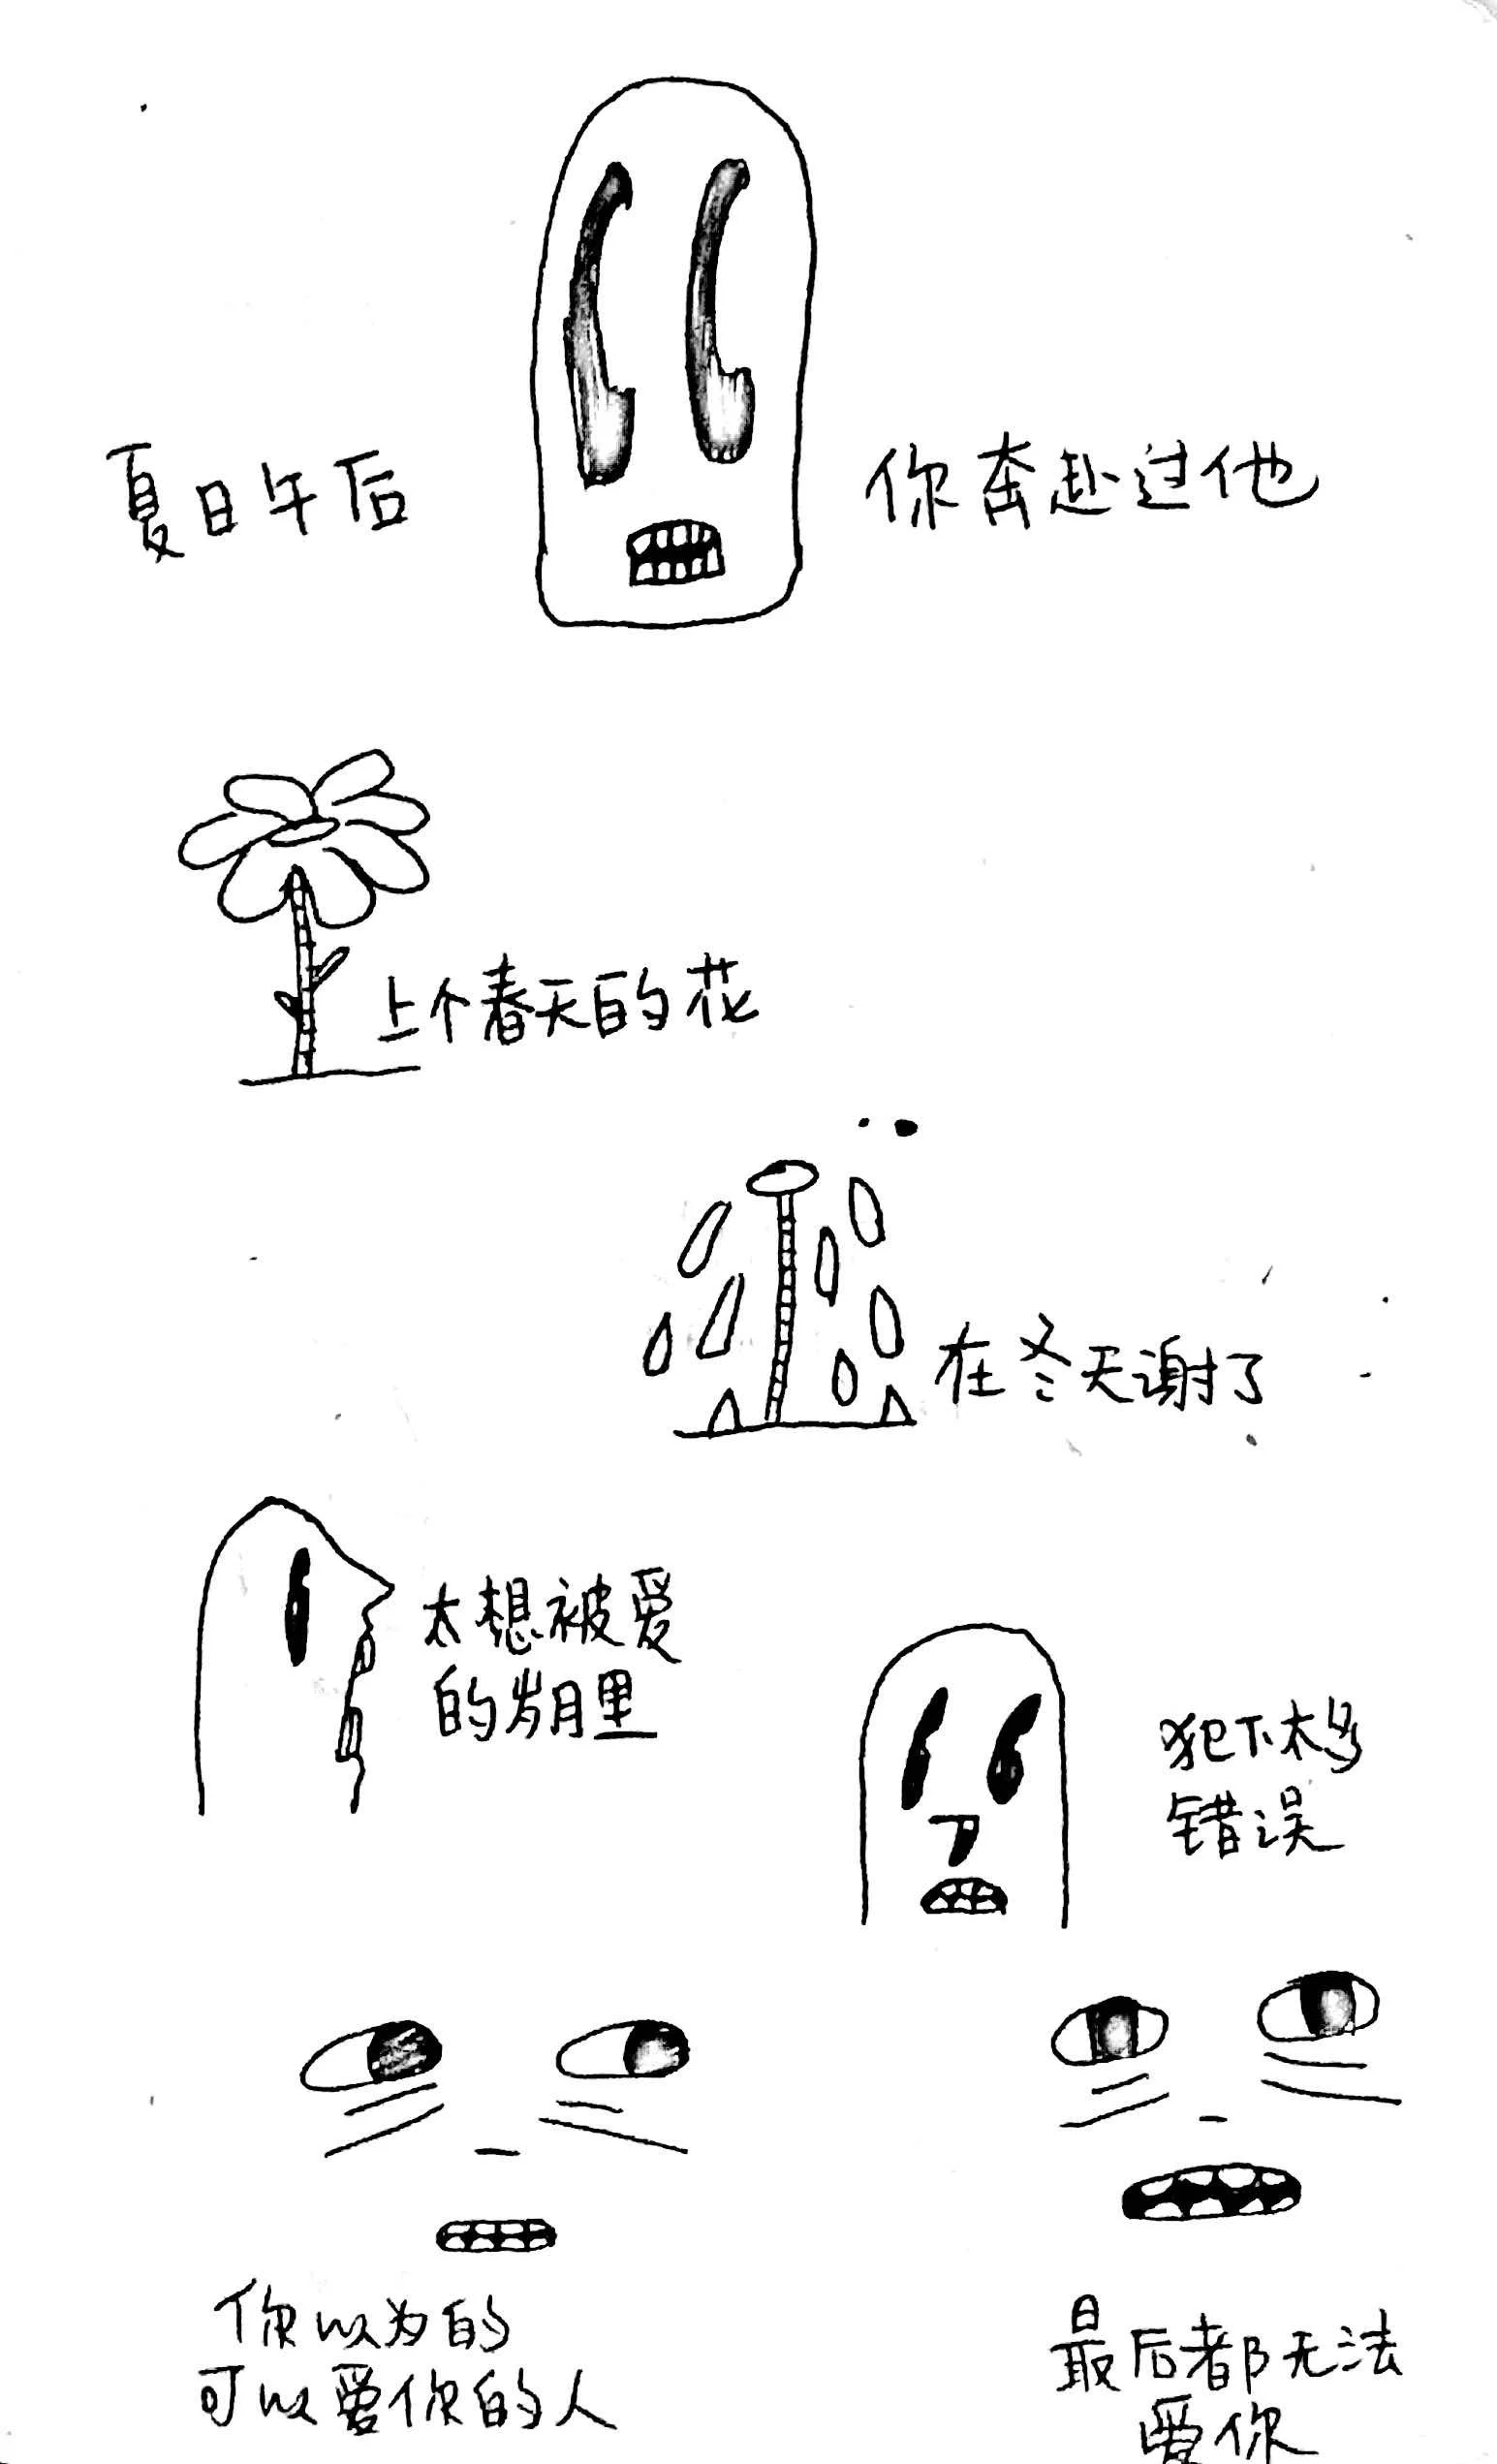 夏日午后
你奔赴过他
上个春天的花
在冬天谢了
太想被爱
的岁月里
犯下太多
错误
你以为的
可以爱你的人
最后都无法
爱你